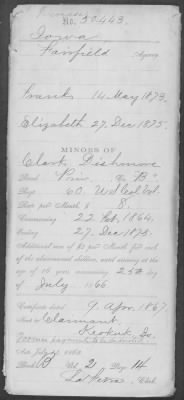 No. 50443.
Iowa
Fairfield Agency.
Frank 14 May 1873.
Elizabeth 27. Dec 1875.
MINORS OF
Clark, Dishmore
Rank Priv. Co. "B"
Regt. 60. U.S. Col. Vol.
Rate per Month $ 8.
Commencing 22 Feb. 1864.
Ending 27. Dec. 1875.
Additional sum of $2 per Month for each
of the abovenamed children, until arriving at the
age of 16 years commencing 25th
day of July 1866.
Certificate dated 9. Apr. 1867.
Sent to Claimant,
Keokuk, Io.
Act
Book B Vol. 2 Page 114
Clerk.